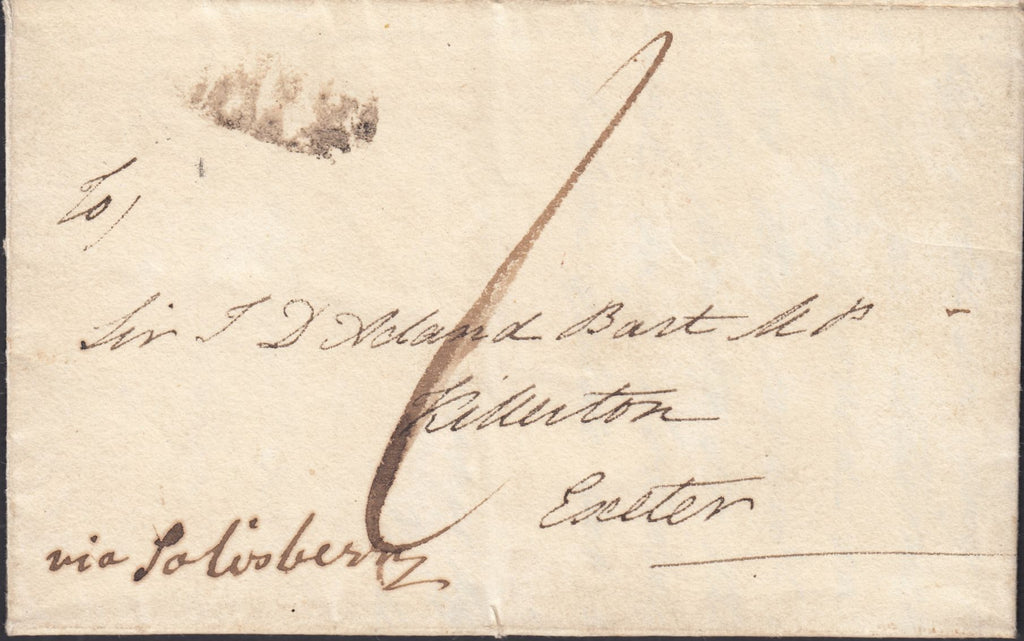 To,
Sir T D Acland Bart MP
Killerton
Exeter
via Salisberry